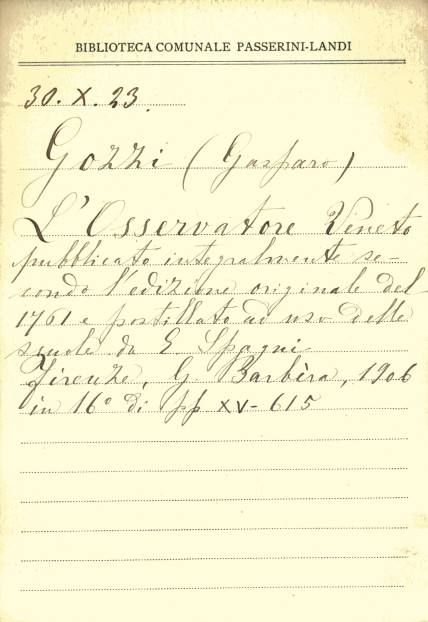 BIBLIOTECA COMUNALE PASSERINI-LANDI
30. X. 23.
Gozzi (Gasparo)
L'Osservatore Veneto
pubblicato integralmente se-
condo l'edizione originale del
1761 e postillato ad uso delle
scuole da E Spagni
Firenze, G Barbèra, 1906
in 16° di pp XV-615